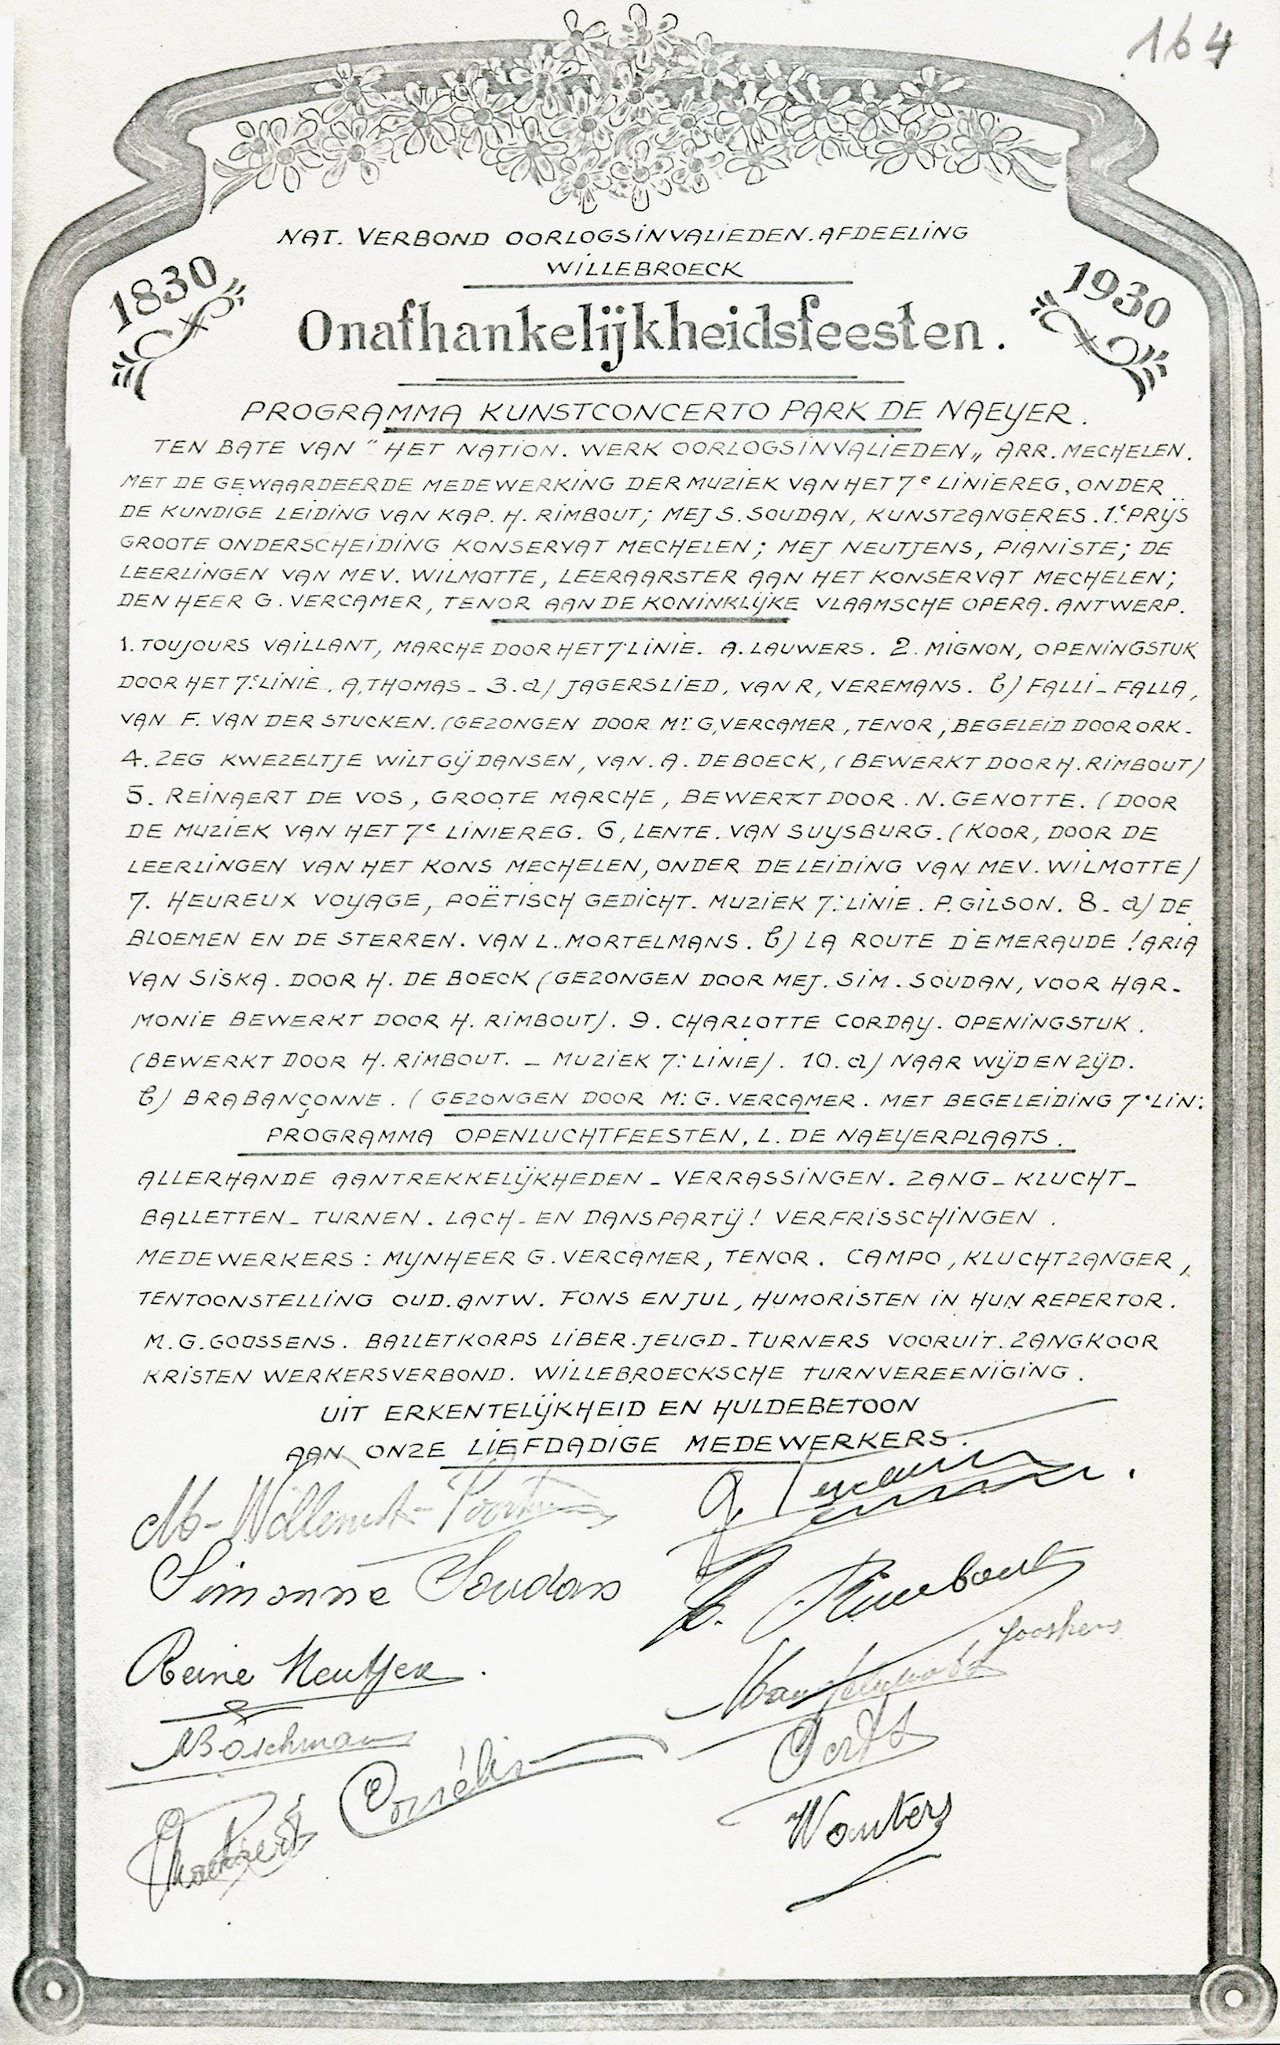 164
NAT. VERBOND OORLOGSINVALIEDEN. AFDEELING
WILLEBROECK
1830
1930
Onafhankelijkheidsfeesten.
PROGRAMMA KUNSTCONCERTO PARK DE NAEYER.
TEN BATE VAN "HET NATION. WERK OORLOGSINVALIEDEN„ ARR. MECHELEN.
MET DE GEWAARDEERDE MEDEWERKING DER MUZIEK VAN HET 7e LINIEREG, ONDER
DE KUNDIGE LEIDING VAN KAP. H. RIMBOUT; MEJ S. SOUDAN, KUNSTZANGERES. 1e PRIJS
GROOTE ONDERSCHEIDING KONSERVAT MECHELEN; MEJ NEUTJENS, PIANISTE; DE
LEERLINGEN VAN MEV. WILMOTTE, LEERAARSTER AAN HET KONSERVAT MECHELEN;
DEN HEER G. VERCAMER, TENOR AAN DE KONINKLIJKE VLAAMSCHE OPERA. ANTWERP.
1. TOUJOURS VAILLANT, MARCHE DOOR HET 7e LINIE. A. LAUWERS. 2. MIGNON, OPENINGSTUK
DOOR HET 7e LINIE. A. THOMAS - 3. a) JAGERSLIED, VAN R, VEREMANS. b) FALLI-FALLA,
VAN F. VAN DER STUCKEN. (GEZONGEN DOOR Mr. G, VERCAMER, TENOR, BEGELEID DOOR ORK.
4. ZEG KWEZELTJE WILT GIJ DANSEN, VAN. A. DE BOECK, (BEWERKT DOOR H. RIMBOUT)
5. REINAERT DE VOS, GROOTE MARCHE, BEWERKT DOOR. N. GENOTTE. (DOOR
DE MUZIEK VAN HET 7e LINIEREG. 6, LENTE. VAN SUYSBURG. (KOOR, DOOR DE
LEERLINGEN VAN HET KONS MECHELEN, ONDER DE LEIDING VAN MEV. WILMOTTE)
7. HEUREUX VOYAGE, POËTISCH GEDICHT. MUZIEK 7e LINIE. P. GILSON. 8 - a) DE
BLOEMEN EN DE STERREN. VAN L. MORTELMANS. b) LA ROUTE D'EMERAUDE ! ARIA
VAN SISKA. DOOR H. DE BOECK (GEZONGEN DOOR MEJ. SIM. SOUDAN, VOOR HAR-
MONIE BEWERKT DOOR H. RIMBOUT). 9. CHARLOTTE CORDAY. OPENINGSTUK.
(BEWERKT DOOR H. RIMBOUT. - MUZIEK 7e LINIE). 10. a) NAAR WIJDEN ZIJD.
b) BRABANÇONNE. (GEZONGEN DOOR Mr G. VERCAMER. MET BEGELEIDING 7e LIN:
PROGRAMMA OPENLUCHTFEESTEN, L. DE NAEYERPLAATS.
ALLERHANDE AANTREKKELIJKHEDEN - VERRASSINGEN. ZANG - KLUCHT -
BALLETTEN - TURNEN. LACH - EN DANSPARTIJ! VERFRISSCHINGEN.
MEDEWERKERS: MIJNHEER G. VERCAMER, TENOR. CAMPO, KLUCHTZANGER,
TENTOONSTELLING OUD. ANTW. FONS EN JUL, HUMORISTEN IN HUN REPERTOR.
M. G. GOOSSENS. BALLETKORPS LIBER. JEUGD - TURNERS VOORUIT. ZANGKOOR
KRISTEN WERKERSVERBOND. WILLEBROECKSCHE TURNVEREENIGING.
UIT ERKENTELIJKHEID EN HULDEBETOON
AAN ONZE LIEFDADIGE MEDEWERKERS.
G. Vercamer
Simonne Soudan
H. Rimbout
Reine Neutjens.
Jooskens
Cornélis
Wouters